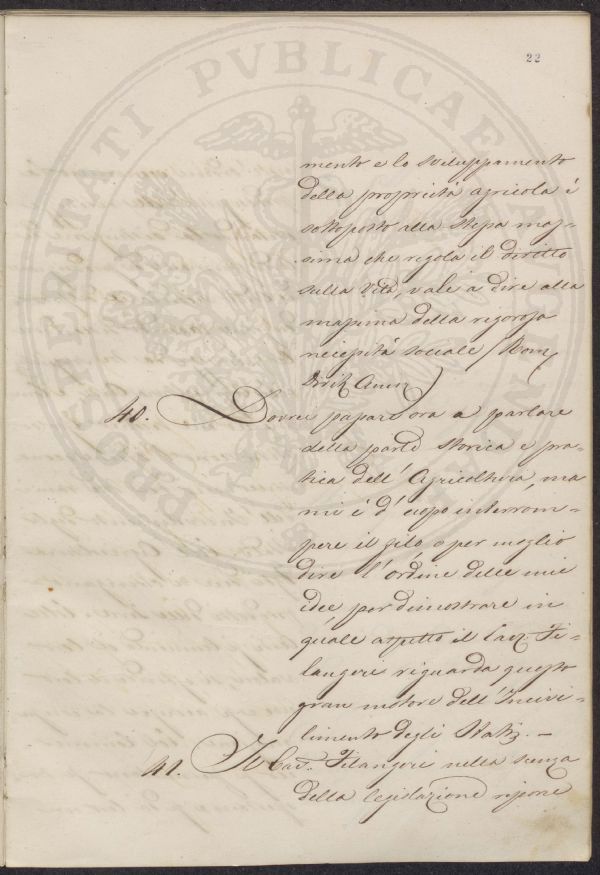 22
PROSPERITATI PVBLICAE AVGENDAE
mento e lo sviluppamento
della proprietà agricola è
sottoposto alla stessa mas=
sima che regola il diritto
sulla Vita, vale a dire alla
massima della rigorosa
necessità sociale (Rom
40. Dovrei passare ora a parlare
della parte storica e pra=
tica dell'Agricoltura, ma
mi è d'uopo interrom=
pere il filo, o per meglio
dire l'ordine delle mie
idee per dimostrare in
quale aspetto il Cav. Fi=
langeri riguarda questo
gran motore dell'Incivi=
limento degli Stati. —
41. Il Cav. Filangeri nella scienza
della legislazione ripone